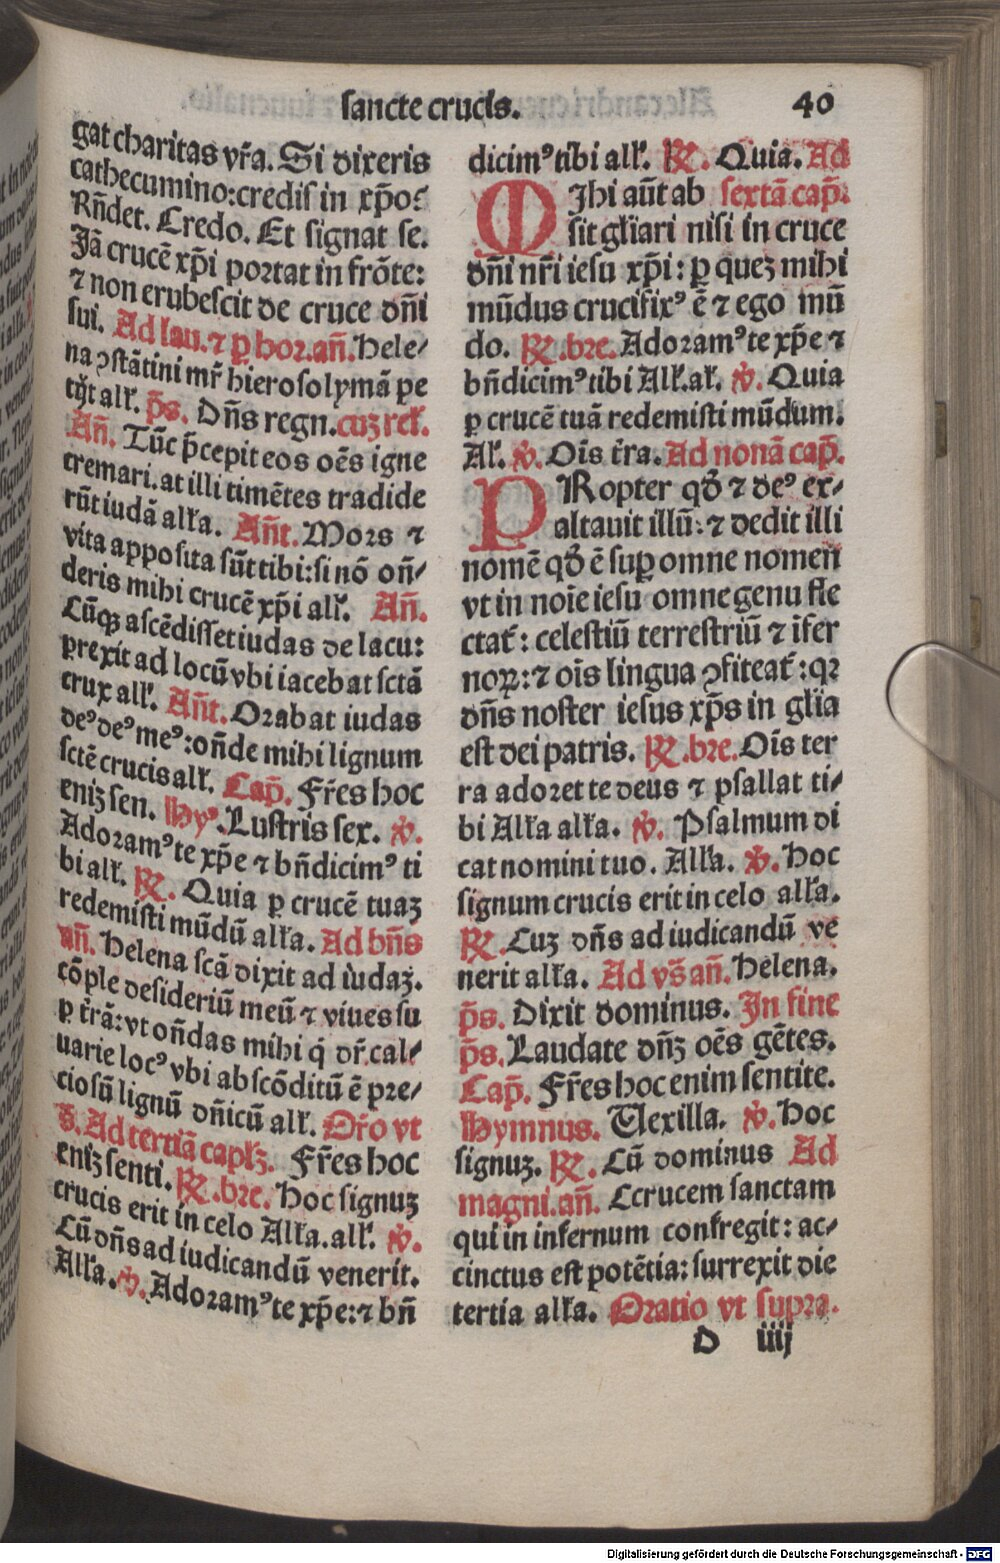 sancte crucis. 40
gat charitas vr̃a. Si dixeris
cathecumino: credis in xp̃o:
Rñdet. Credo. Et signat se.
Jã crucẽ xp̃i portat in frõte:
⁊ non erubescit de cruce dñi
sui. Ad lau. ⁊ ꝑ hor. añ. Hele⸗
na ꝯstãtini mr̃ hierosolymã pe
tijt all'. p̃s. Dñs regn. cuꝫ rel'.
Añ. Tũc p̃cepit eos oẽs igne
cremari. at illi timẽtes tradide
rũt iudã alľa. Añt. Mors ⁊
vita apposita sũt tibi: si nõ oñ⸗
deris mihi crucẽ xp̃i all'. Añ.
Cũqꝫ ascẽdisset iudas de lacu:
prexit ad locũ vbi iacebat sctã
crux all'. Añt. Orabat iudas
deꝰ deꝰ meꝰ: oñde mihi lignum
sctẽ crucis all'. Cap̃. Fr̃es hoc
eniꝫ sen. Hyꝰ. Lustris sex. ℣.
Adoramꝰ te xp̃e ⁊ bñdicimꝰ ti
bi all'. ℟. Quia ꝑ crucẽ tuaꝫ
redemisti mũdũ alľa. Ad bñs
añ. Helena scã dixit ad iudaꝫ.
cõple desideriũ meũ ⁊ viues su
ꝑ tr̃ã: vt oñdas mihi q̇ dr̃. cal⸗
uarie locꝰ vbi abscõditũ ẽ pre⸗
ciosũ lignũ dñicũ all'. Or̃o vt
s̃. Ad tertiã capl'ꝫ. Fr̃es hoc
eniꝫ senti. ℟. bre. Hoc signuꝫ
crucis erit in celo Alľa. all'. ℣.
Cũ dñs ad iudicandũ venerit.
Alľa. ℣. Adoramꝰ te xp̃e: ⁊ bñ
dicimꝰ tibi all'. ℟. Quia. Ad
MJhi aũt ab sextã cap̃.
sit gľiari nisi in cruce
dñi nr̃i iesu xp̃i: ꝑ queꝫ mihi
mũdus crucifixꝰ ẽ ⁊ ego mũ
do. ℟. bre. Adoramꝰ te xp̃e ⁊
bñdicimꝰ tibi All'. al'. ℣. Quia
ꝑ crucẽ tuã redemisti mũdum.
Al'. ℣. Oĩs tr̃a. Ad nonã cap̃.
PRopter qđ ⁊ deꝰ ex⸗
altauit illũ: ⁊ dedit illi
nomẽ qđ ẽ suꝑ omne nomen
vt in noĩe iesu omne genu fle
ctat̃: celestiũ terrestriũ ⁊ ĩfer
noꝝ: ⁊ oĩs lingua ꝯfiteat̃: qꝛ
dñs noster iesus xp̃s in gľia
est dei patris. ℟. bre. Oĩs ter
ra adoret te deus ⁊ psallat ti⸗
bi Alľa alľa. ℣. Psalmum di
cat nomini tuo. Alľa. ℣. Hoc
signum crucis erit in celo alľa.
℟. Cuꝫ dñs ad iudicandũ ve
nerit alľa. Ad vs̃ añ. Helena.
p̃s. Dixit dominus. In fine
p̃s. Laudate dñꝫ oẽs gẽtes.
Cap̃. Fr̃es hoc enim sentite.
Hymnus. Vexilla. ℣. Hoc
signuꝫ. ℟. Cũ dominus Ad
magni. añ. Ccrucem sanctam
qui in infernum confregit: ac⸗
cinctus est potẽtia: surrexit die
tertia alľa. Oratio vt supra.
D iiij
Digitalisierung gefördert durch die Deutsche Forschungsgemeinschaft - DFG